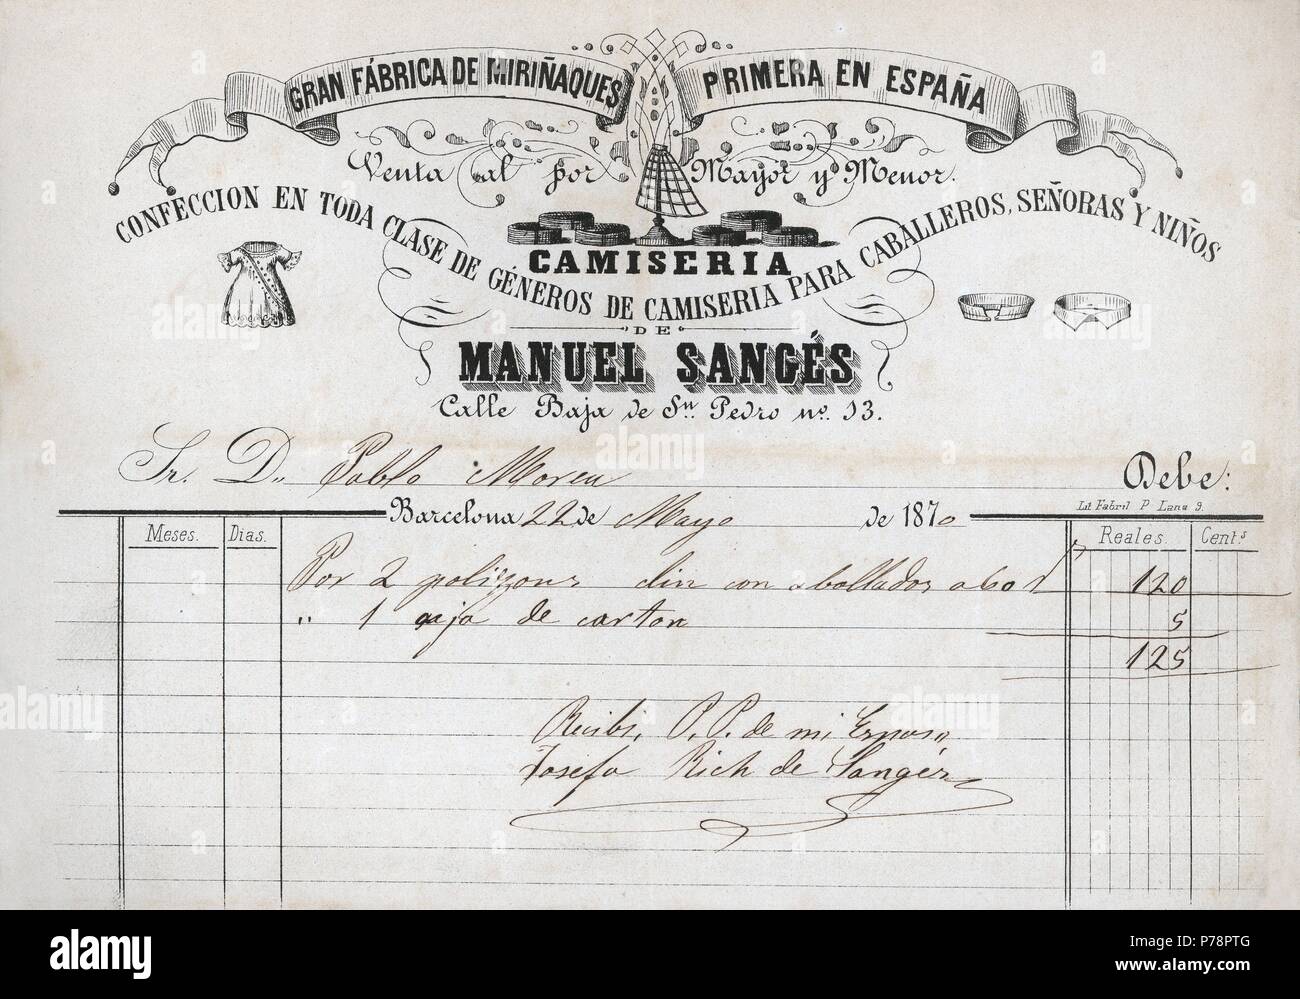 GRAN FÁBRICA DE MIRIÑAQUES PRIMERA EN ESPAÑA
Venta al por Mayor y Menor.
CONFECCION EN TODA CLASE DE GÉNEROS DE CAMISERIA PARA CABALLEROS, SEÑORAS Y NIÑOS
CAMISERIA
DE
MANUEL SANGÉS
Calle Baja de Sn. Pedro no. 13.
Sr. D. Pablo Moreu Debe:
Barcelona 22 de Mayo de 1870
Lit Fabril P Lana 9.
Meses. Dias. Reales. Cent.s
Por 2 polizzons con abollados a 60 120
" 1 caja de carton 5
125
Recibi, P. P. de mi Esposo
Josefa Rich de Sangés
alamy
alamy
Image ID: P78PTG
www.alamy.com